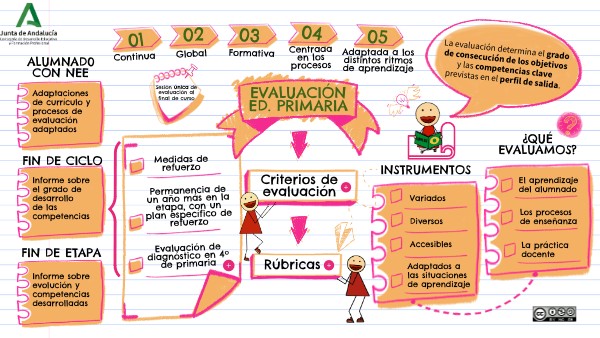 Junta de Andalucía
01
Continua
02
Global
03
Formativa
04
Centrada
en los
procesos
05
Adaptada a los
distintos ritmos
de aprendizaje
La evaluación determina el grado
de consecución de los objetivos
y las competencias clave
previstas en el perfil de salida.
Sesión única de
evaluación al
final de curso
EVALUACIÓN
ED. PRIMARIA
ALUMNADO
CON NEE
Adaptaciones
de currículo y
procesos de
evaluación
adaptados
FIN DE CICLO
Informe sobre
el grado de
desarrollo
de las
competencias
FIN DE ETAPA
Informe sobre
evolución y
competencias
desarrolladas
Medidas de
refuerzo
Permanencia de
un año mas en la
etapa, con un
plan especifico de
refuerzo
Evaluación de
diagnóstico en 4º
de primaria
Criterios de
evaluación
Rúbricas
INSTRUMENTOS
Variados
Diversos
Accesibles
Adaptados a
las situaciones
de aprendizaje
¿QUÉ
EVALUAMOS?
El aprendizaje
del alumnado
Los procesos
de enseñanza
La práctica
docente